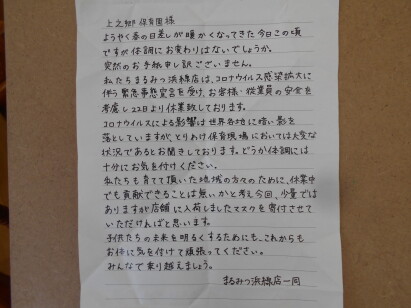 上之郷保育園様
ようやく春の日差しが暖かくなってきた今日この頃
ですが体調にお変わりはないでしょうか。
突然のお手紙申し訳ございません。
私たちまるみつ浜線店は、コロナウイルス感染拡大に
伴う緊急事態宣言を受け、お客様・従業員の安全を
考慮し22日より休業致しております。
コロナウイルスによる影響は世界各地に暗い影を
落としていますが、とりわけ保育現場においては大変な
状況であるとお聞きしております。どうか体調には
十分にお気を付けください。
私たちも育てて頂いた地域の方々のために、休業中
でも貢献できることは無いかと考え今回、少量では
ありますが店舗に入荷しましたマスクを寄付させて
いただければと思います。
子供たちの未来を明るくするためにも、これからも
お体に気を付けて頑張ってください。
みんなで乗り越えましょう。
まるみつ浜線店一同